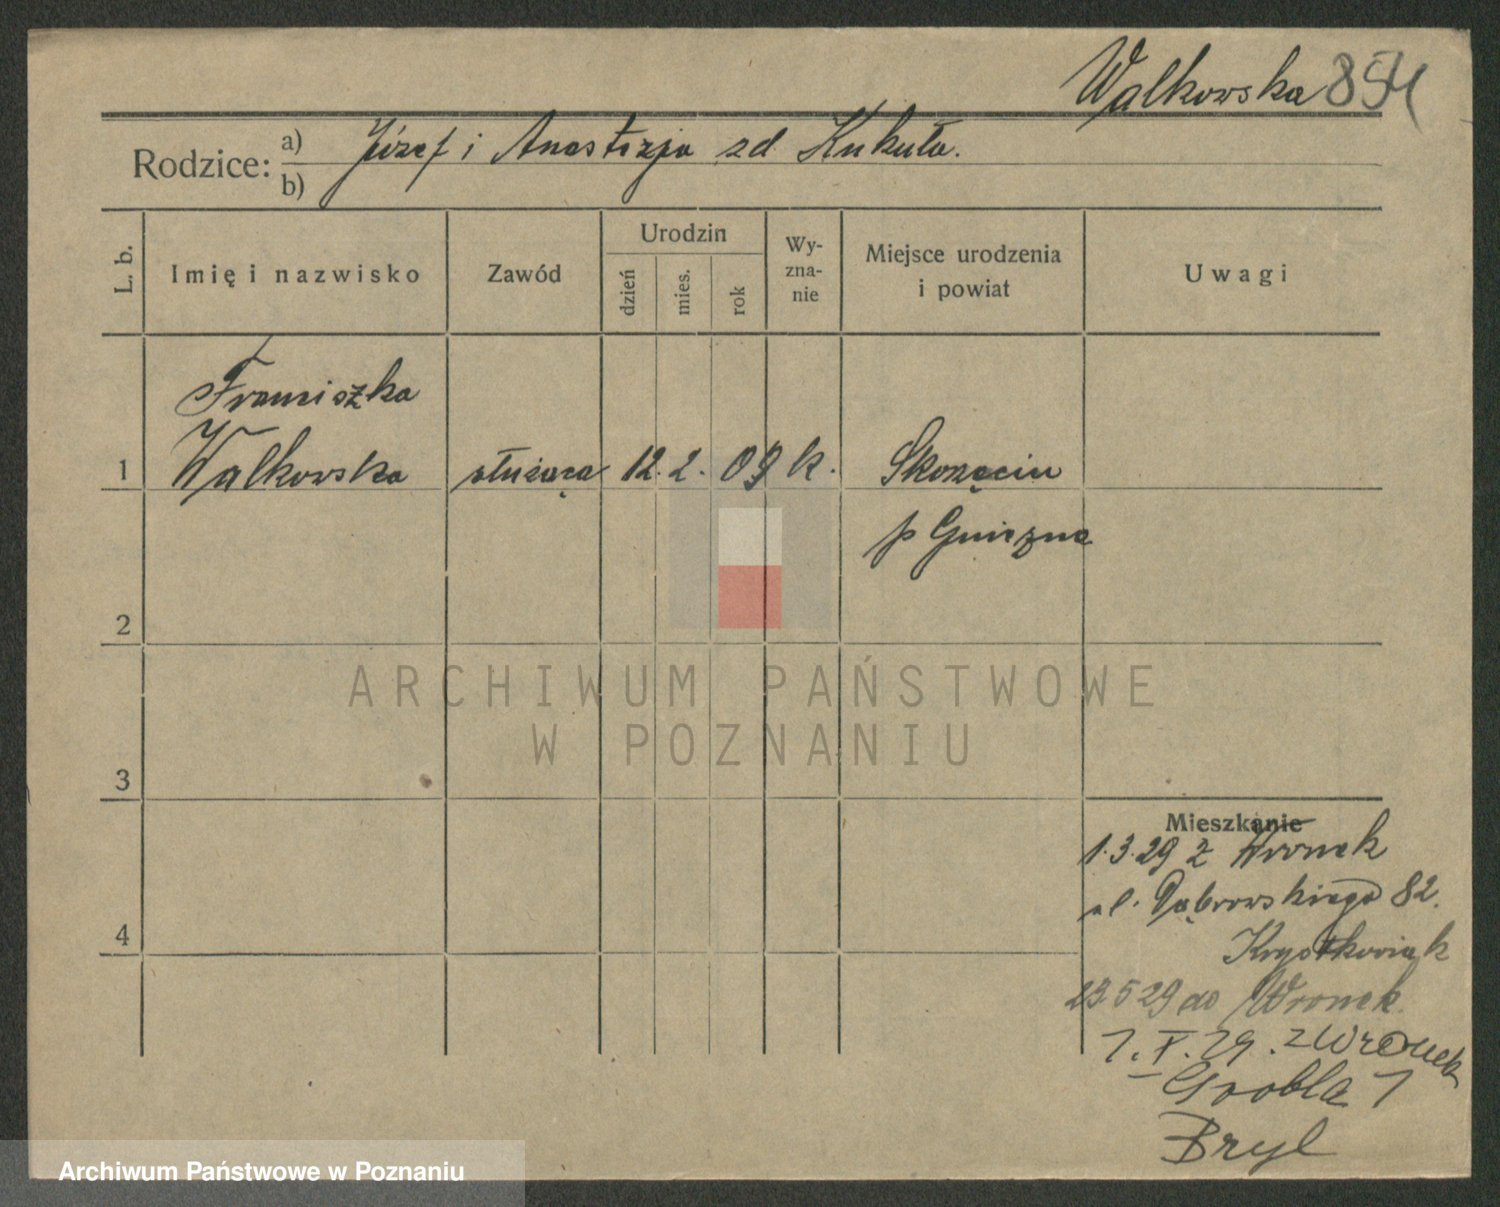 Wałkowska 854
Rodzice: a) Józef i Anastazja zd Kukuła.
b)
L. b.
Imię i nazwisko
Zawód
Urodzin
dzień
mies.
rok
Wy-
zna-
nie
Miejsce urodzenia
i powiat
Uwagi
Franciszka
1 Walkowska służąca 12. 2. 09 k. Skorzęcin
p Gniezno
2
3
4
ARCHIWUM PAŃSTWOWE
W POZNANIU
Mieszkanie
1.3.29 z Wronek
ul. Dąbrowskiego 82.
Krystkowiak
23 5 29 do Wronek.
1. X. 29. z Wronek
Grobla 1
Bryl
Archiwum Państwowe w Poznaniu